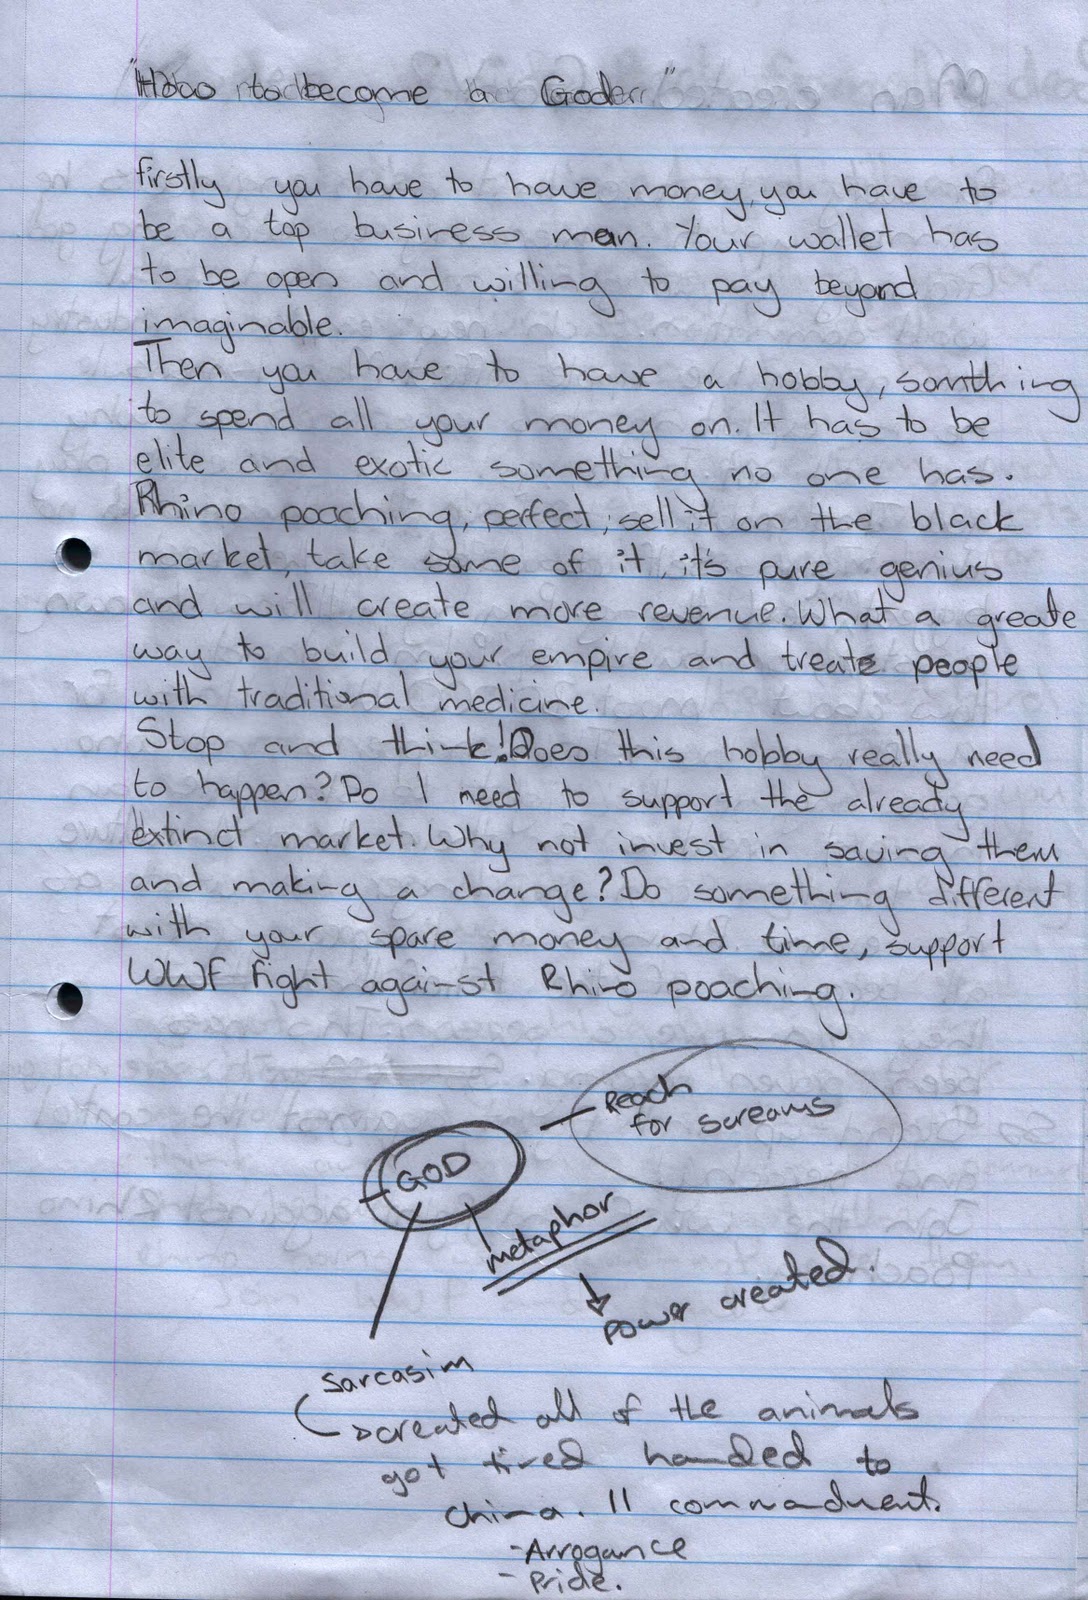 "How to become a God..."
firstly you have to have money, you have to
be a top business man. Your wallet has
to be open and willing to pay beyond
imaginable.
Then you have to have a hobby, somthing
to spend all your money on. It has to be
elite and exotic something no one has.
Rhino poaching, perfect, sell it on the black
market, take some of it, it's pure genius
and will create more revenue. What a greate
way to build your empire and treate people
with traditional medicine.
Stop and think! Does this hobby really need
to happen? Do I need to support the already
extinct market. Why not invest in saving them
and making a change? Do something different
with your spare money and time, support
WWF fight against Rhino poaching.
Reach
for screams
GOD
metaphor
power created.
Sarcasim
created all of the animals
got tired handed to
china. 11 commadment.
- Arrogance
- Pride.